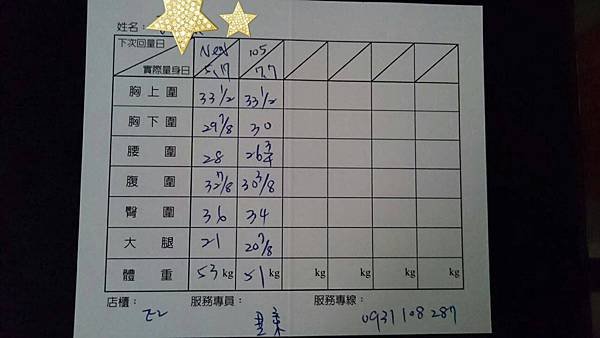 姓名：
下次回量日 New 105
實際量身日 5.17 7.7
胸上圍 33 1/2 33 1/2
胸下圍 29 7/8 30
腰圍 28 26 3/4
腹圍 32 7/8 30 3/8
臀圍 36 34
大腿 21 20 7/8
體重 53 kg 51 kg kg kg kg kg
店櫃： 服務專員： 服務專線：
0931108287